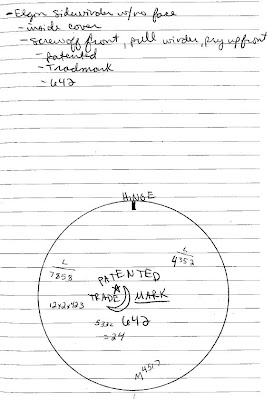 - Elgin Sidewinder w/no face
- inside cover
- Screw off front, pull winder, pry up front
- patented
- Tradmark
- 642
HINGE
L
7858
L
4352
PATENTED
TRADE MARK
12x2x423
642
=24
M4517